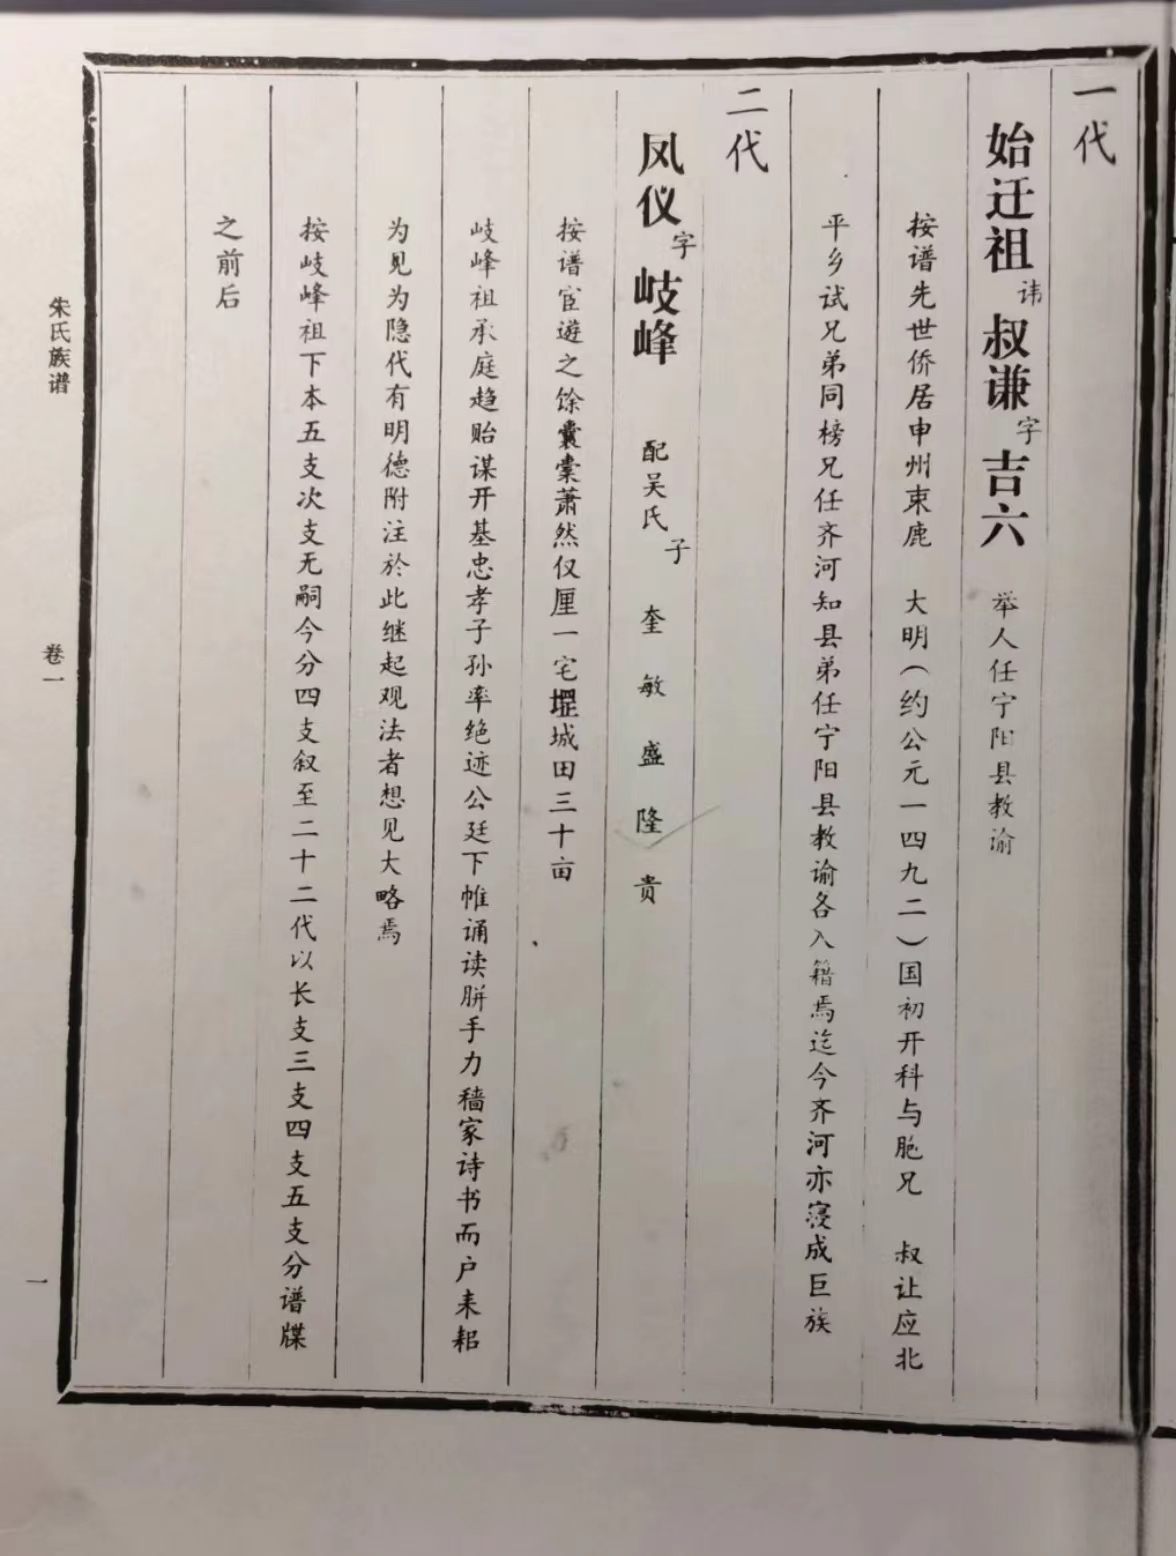 一代
始迁祖讳叔谦字吉六 举人任宁阳县教谕
按谱先世侨居申州束鹿 大明(约公元一四九二)国初开科与胞兄 叔让应北
平乡试兄弟同榜兄任齐河知县弟任宁阳县教谕各入籍焉迄今齐河亦寝成巨族
二代
凤仪字岐峰 配吴氏子 奎 敏 盛 隆 贵
按谱宦遊之馀囊橐萧然仅厘一宅堽城田三十亩
岐峰祖承庭趋贻谋开基忠孝子孙率绝迹公廷下帷诵读胼手力穑家诗书而户耒耜
为见为隐代有明德附注於此继起观法者想见大略焉
按岐峰祖下本五支次支无嗣今分四支叙至二十二代以长支三支四支五支分谱牒
之前后
朱氏族谱
卷一
一